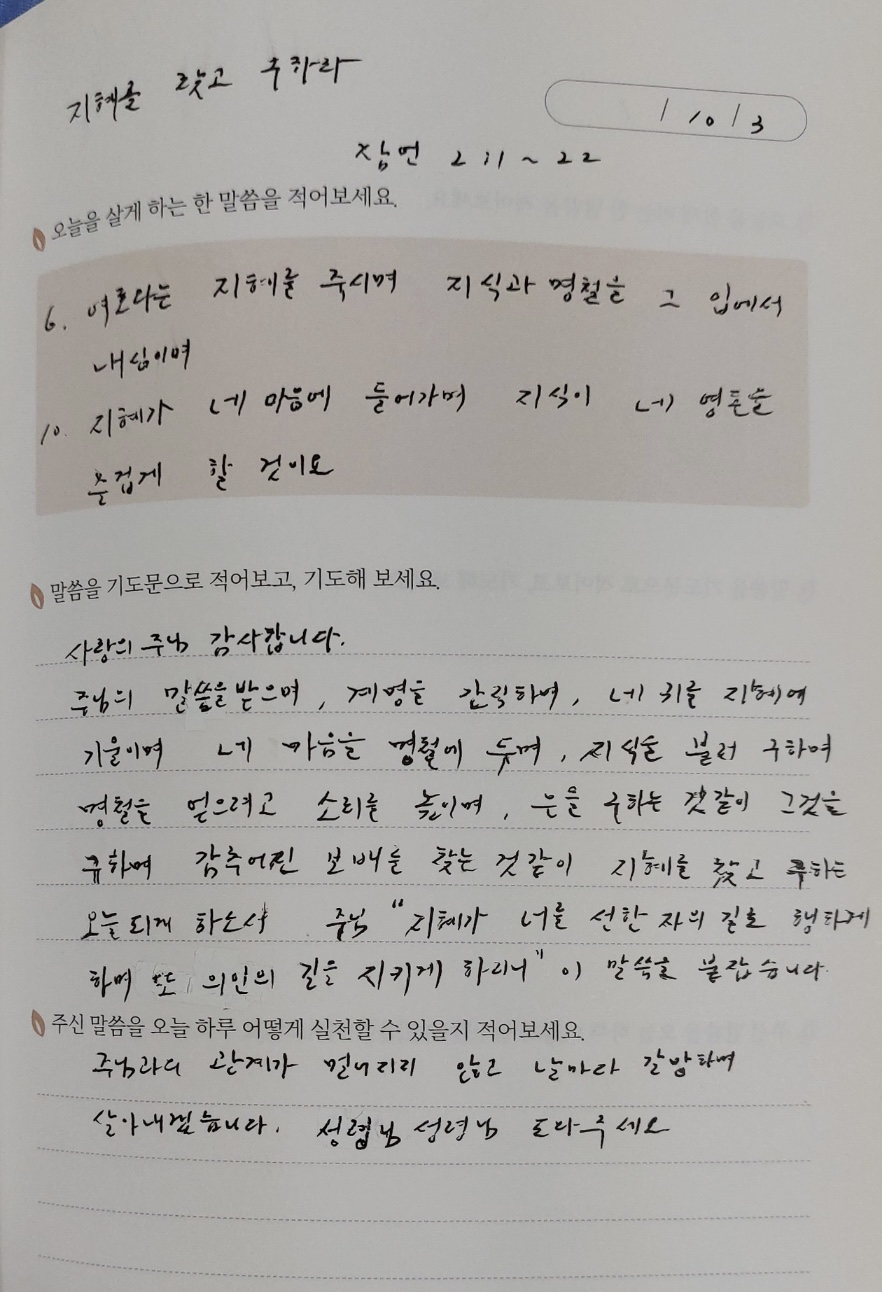 지혜를 찾고 구하라
/ 10 / 3
잠언 2:1 ~ 22
오늘을 살게 하는 한 말씀을 적어보세요.
6. 여호와는 지혜를 주시며 지식과 명철을 그 입에서
내심이며
10. 지혜가 네 마음에 들어가며 지식이 네 영혼을
즐겁게 할 것이요
말씀을 기도문으로 적어보고, 기도해 보세요.
사랑의 주님 감사합니다.
주님의 말씀을 받으며, 계명을 간직하며, 네 귀를 지혜에
기울이며 네 마음을 명철에 두며, 지식을 불러 구하며
명철을 얻으려고 소리를 높이며, 은을 구하는 것같이 그것을
구하며 감추어진 보배를 찾는 것같이 지혜를 찾고 구하는
오늘 되게 하소서 주님 "지혜가 너를 선한 자의 길로 행하게
하며 또 의인의 길을 지키게 하리니" 이 말씀을 붙잡습니다
주신 말씀을 오늘 하루 어떻게 실천할 수 있을지 적어보세요.
주님과의 관계가 멀어지지 않고 날마다 갈망하며
살아내겠습니다. 성령님 성령님 도와주세요